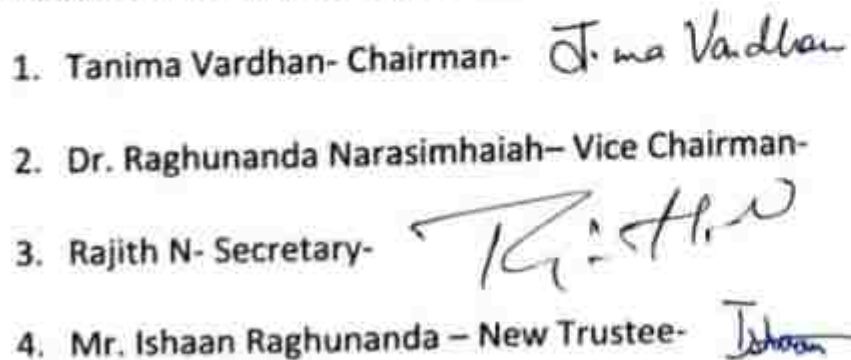 1. Tanima Vardhan- Chairman- Vardhan
2. Dr. Raghunanda Narasimhaiah– Vice Chairman-
3. Rajith N- Secretary-
4. Mr. Ishaan Raghunanda – New Trustee- Ishaan